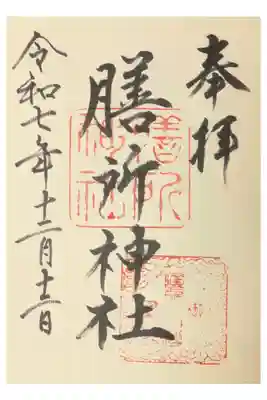 奉拝
膳所神社
令和七年十二月十三日